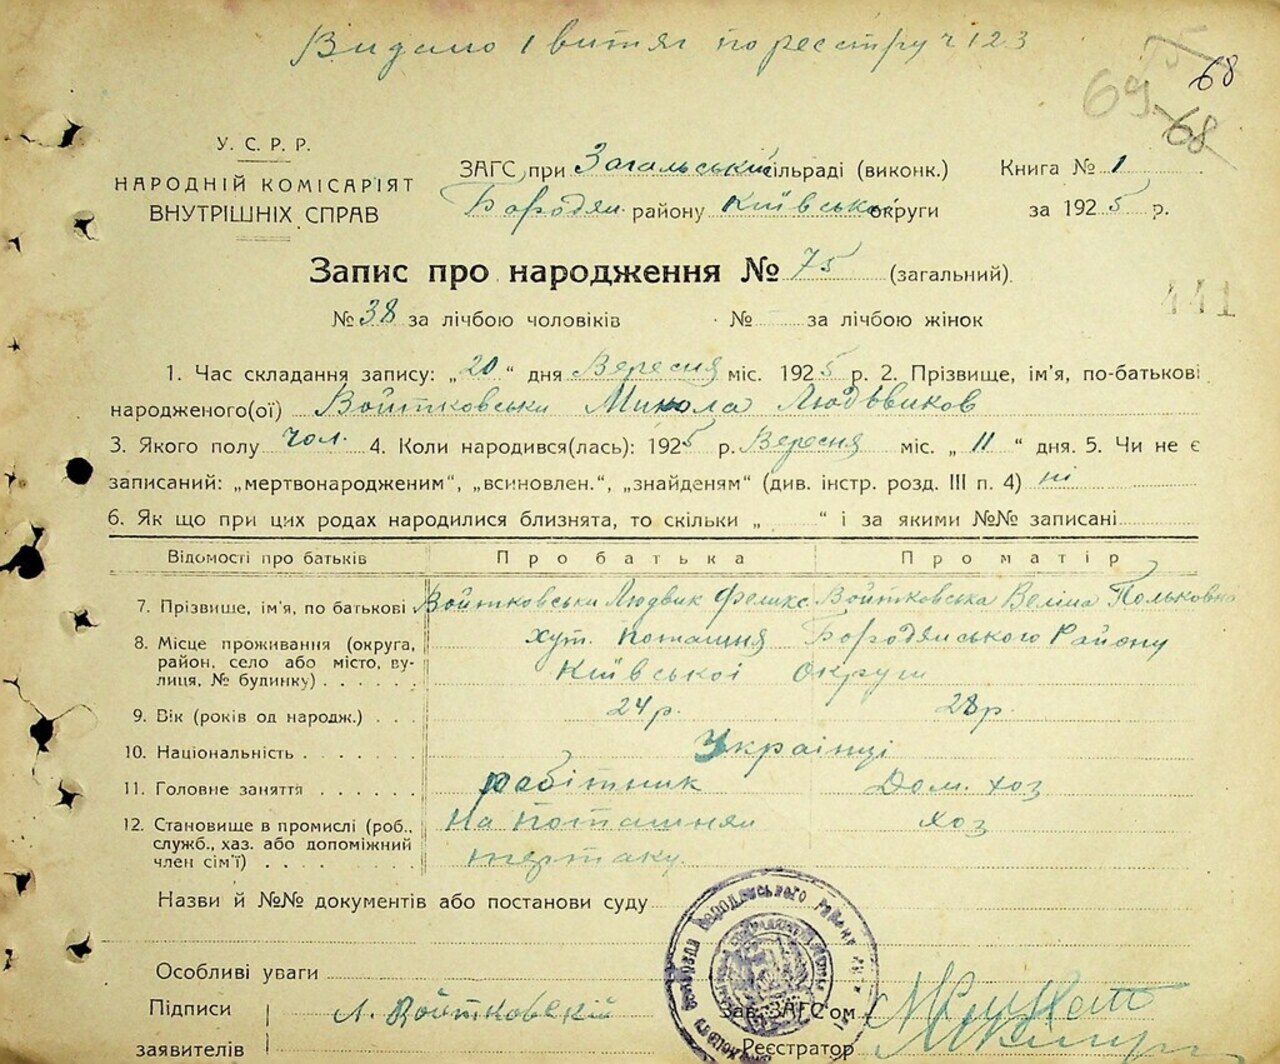 Видано 1 витяг по реєстру ч 123
75
68
69
68
У. С. Р. Р.
НАРОДНІЙ КОМІСАРІЯТ
ВНУТРІШНІХ СПРАВ
ЗАГС при Загальський сільраді (виконк.) Книга № 1
Бородян. району Київсько округи за 1925 р.
Запис про народження № 75 (загальний).
441
№ 38 за лічбою чоловіків № за лічбою жінок
1. Час складання запису: „20“ дня Вересня міс. 1925 р. 2. Прізвище, ім'я, по-батькові
народженого(ої) Войтковськи Микола Людьвиков
3. Якого полу чол. 4. Коли народився(лась): 1925 р. Вересня міс. „11“ дня. 5. Чи не є
записаний: „мертвонародженим“, „всиновлен.“, „знайденям“ (див. інстр. розд. III п. 4) ні
6. Як що при цих родах народилися близнята, то скільки „ “ і за якими №№ записані
Відомості про батьків Про батька Про матір
7. Прізвище, ім'я, по батькові Войтковськи Людвик Фелікс Войтковська Веліна Польковна
8. Місце проживання (округа, район, село або місто, вулиця, № будинку) хут. Поташня Бородянського Району
Київської Округи
9. Вік (років од народж.) 24 р. 28 р.
10. Національність Українці
11. Головне заняття робітник Дом. хоз
12. Становище в промислі (роб., служб., хаз. або допоміжний член сім'ї) На поташням хоз
тертаку.
Назви й №№ документів або постанови суду
Особливі уваги
Підписи
заявителів
Л. Войтковскій
Зав. ЗАГС'ом
Реєстратор